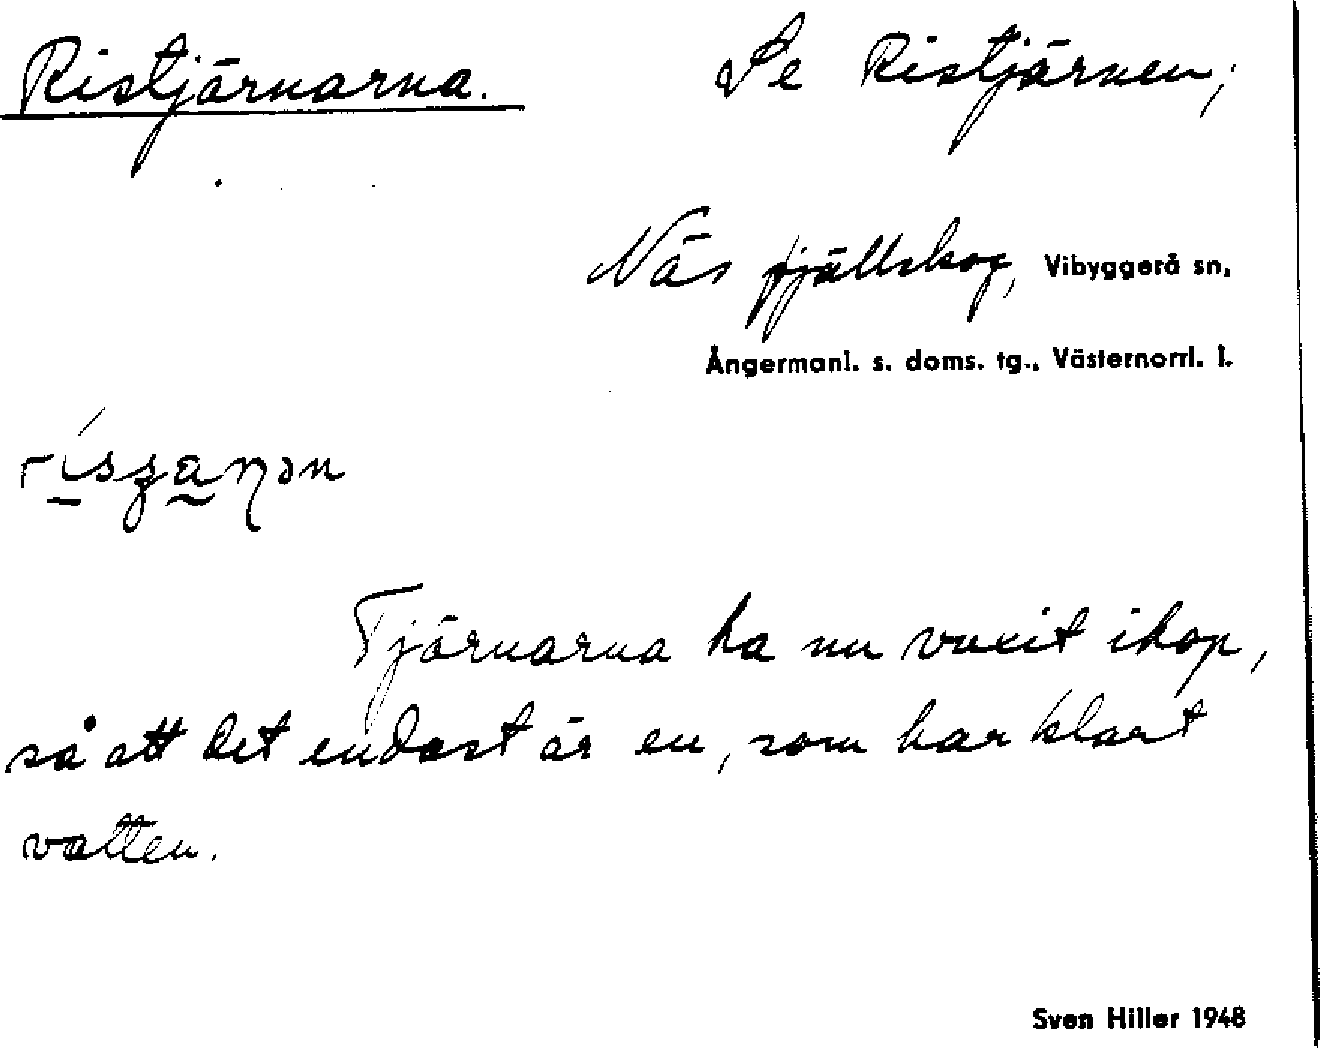 Ristjärnarna. Se Ristjärnen;
Näs fjällskog, Vibyggerå sn,
Ångermanl. s. doms. tg., Västernorrl. l.
Tjärnarna ha nu vuxit ihop,
så att det endast är en, som har klart
vatten.
Sven Hiller 1948